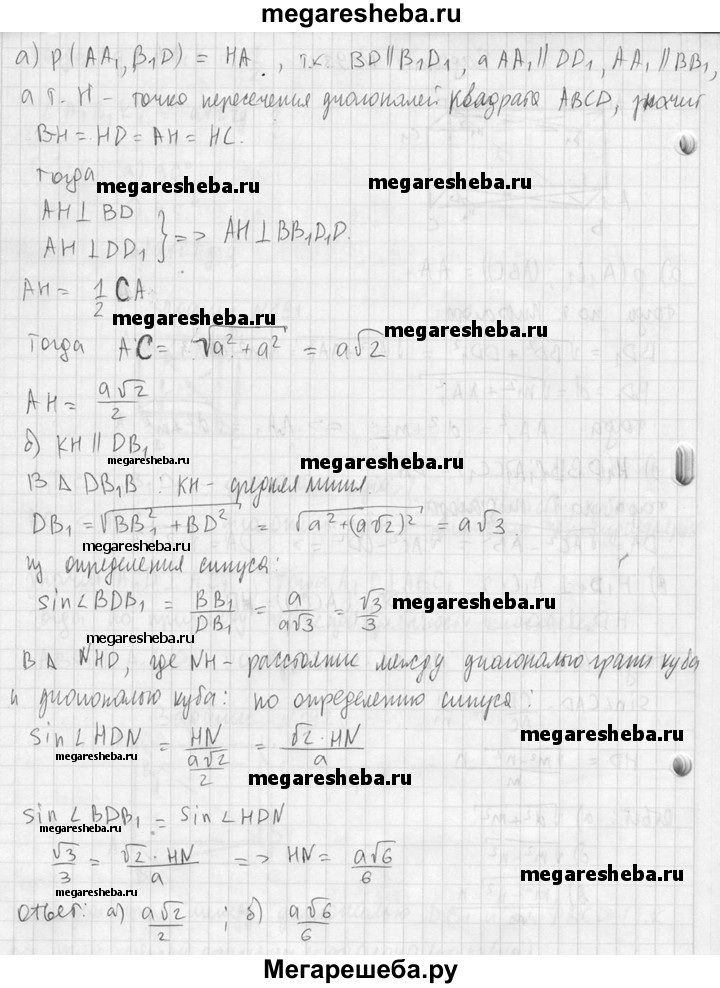 megaresheba.ru
а) ρ(AA₁, B₁D) = HA, т.к. BD∥B₁D₁, а AA₁∥DD₁, AA₁∥BB₁,
а т. H - точка пересечения диагоналей квадрата ABCD, значит
BH = HD = AH = HC.
Тогда
megaresheba.ru megaresheba.ru
AH ⊥ BD
AH ⊥ DD₁ } => AH ⊥ BB₁D₁D.
megaresheba.ru
AH = 1/2 CA
megaresheba.ru megaresheba.ru
Тогда AC = √(a² + a²) = a√2
AH = a√2/2
б) KH ∥ DB₁
megaresheba.ru megaresheba.ru
В Δ DB₁B : KH - средняя линия.
DB₁ = √(BB₁² + BD²) = √(a² + (a√2)²) = a√3.
megaresheba.ru
из определения синуса:
sin∠BDB₁ = BB₁/DB₁ = a/a√3 = √3/3
megaresheba.ru
megaresheba.ru
В Δ NHD, где NH - расстояние между диагональю грани куба
и диагональю куба: по определению синуса:
sin∠HDN = HN/(a√2/2) = √2·HN/a
megaresheba.ru
megaresheba.ru megaresheba.ru
sin∠BDB₁ = sin∠HDN
megaresheba.ru
√3/3 = √2·HN/a => HN = a√6/6
megaresheba.ru megaresheba.ru
Ответ: а) a√2/2 ; б) a√6/6
Мегарешеба.ру